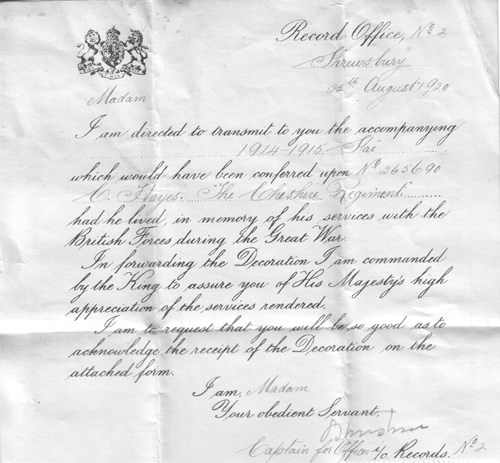 Record Office, No 2
Shrewsbury
25th August 1920
Madam
I am directed to transmit to you the accompanying
1914-1915 Star
which would have been conferred upon No 265690
C. Hayes. The Cheshire Regiment
had he lived, in memory of his services with the
British Forces during the Great War.
In forwarding the Decoration I am commanded
by the King to assure you of His Majesty's high
appreciation of the services rendered.
I am to request that you will be so good as to
acknowledge the receipt of the Decoration on the
attached form.
I am, Madam
Your obedient Servant,
Captain for Officer i/c Records. No 2